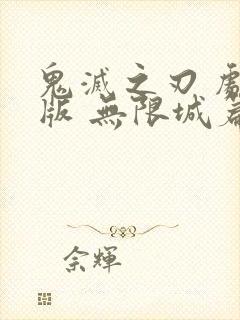 鬼滅之刃
版 無限城
佘輝